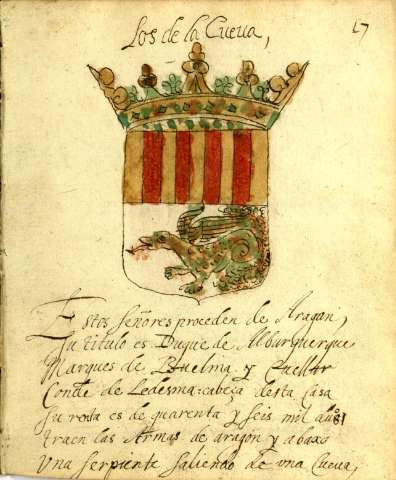 Los de la Cueua,
Estos señores proceden de Aragon,
su titulo es Duque de Alburquerque
Marques de Huelma y Cuellar
Conde de Ledesma: cabeça desta Casa
su renta es de quarenta y seis mil
traen las Armas de aragon y abaxo
Una serpiente saliendo de una Cueua,